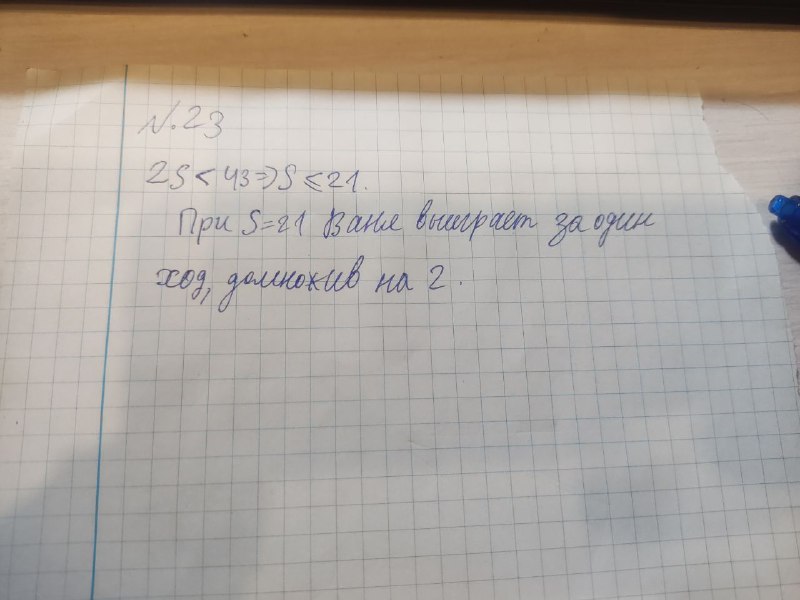 N.23
2S < 43 => S ⩽ 21.
При S=21 Ваня выиграет за один
ход, домножив на 2.